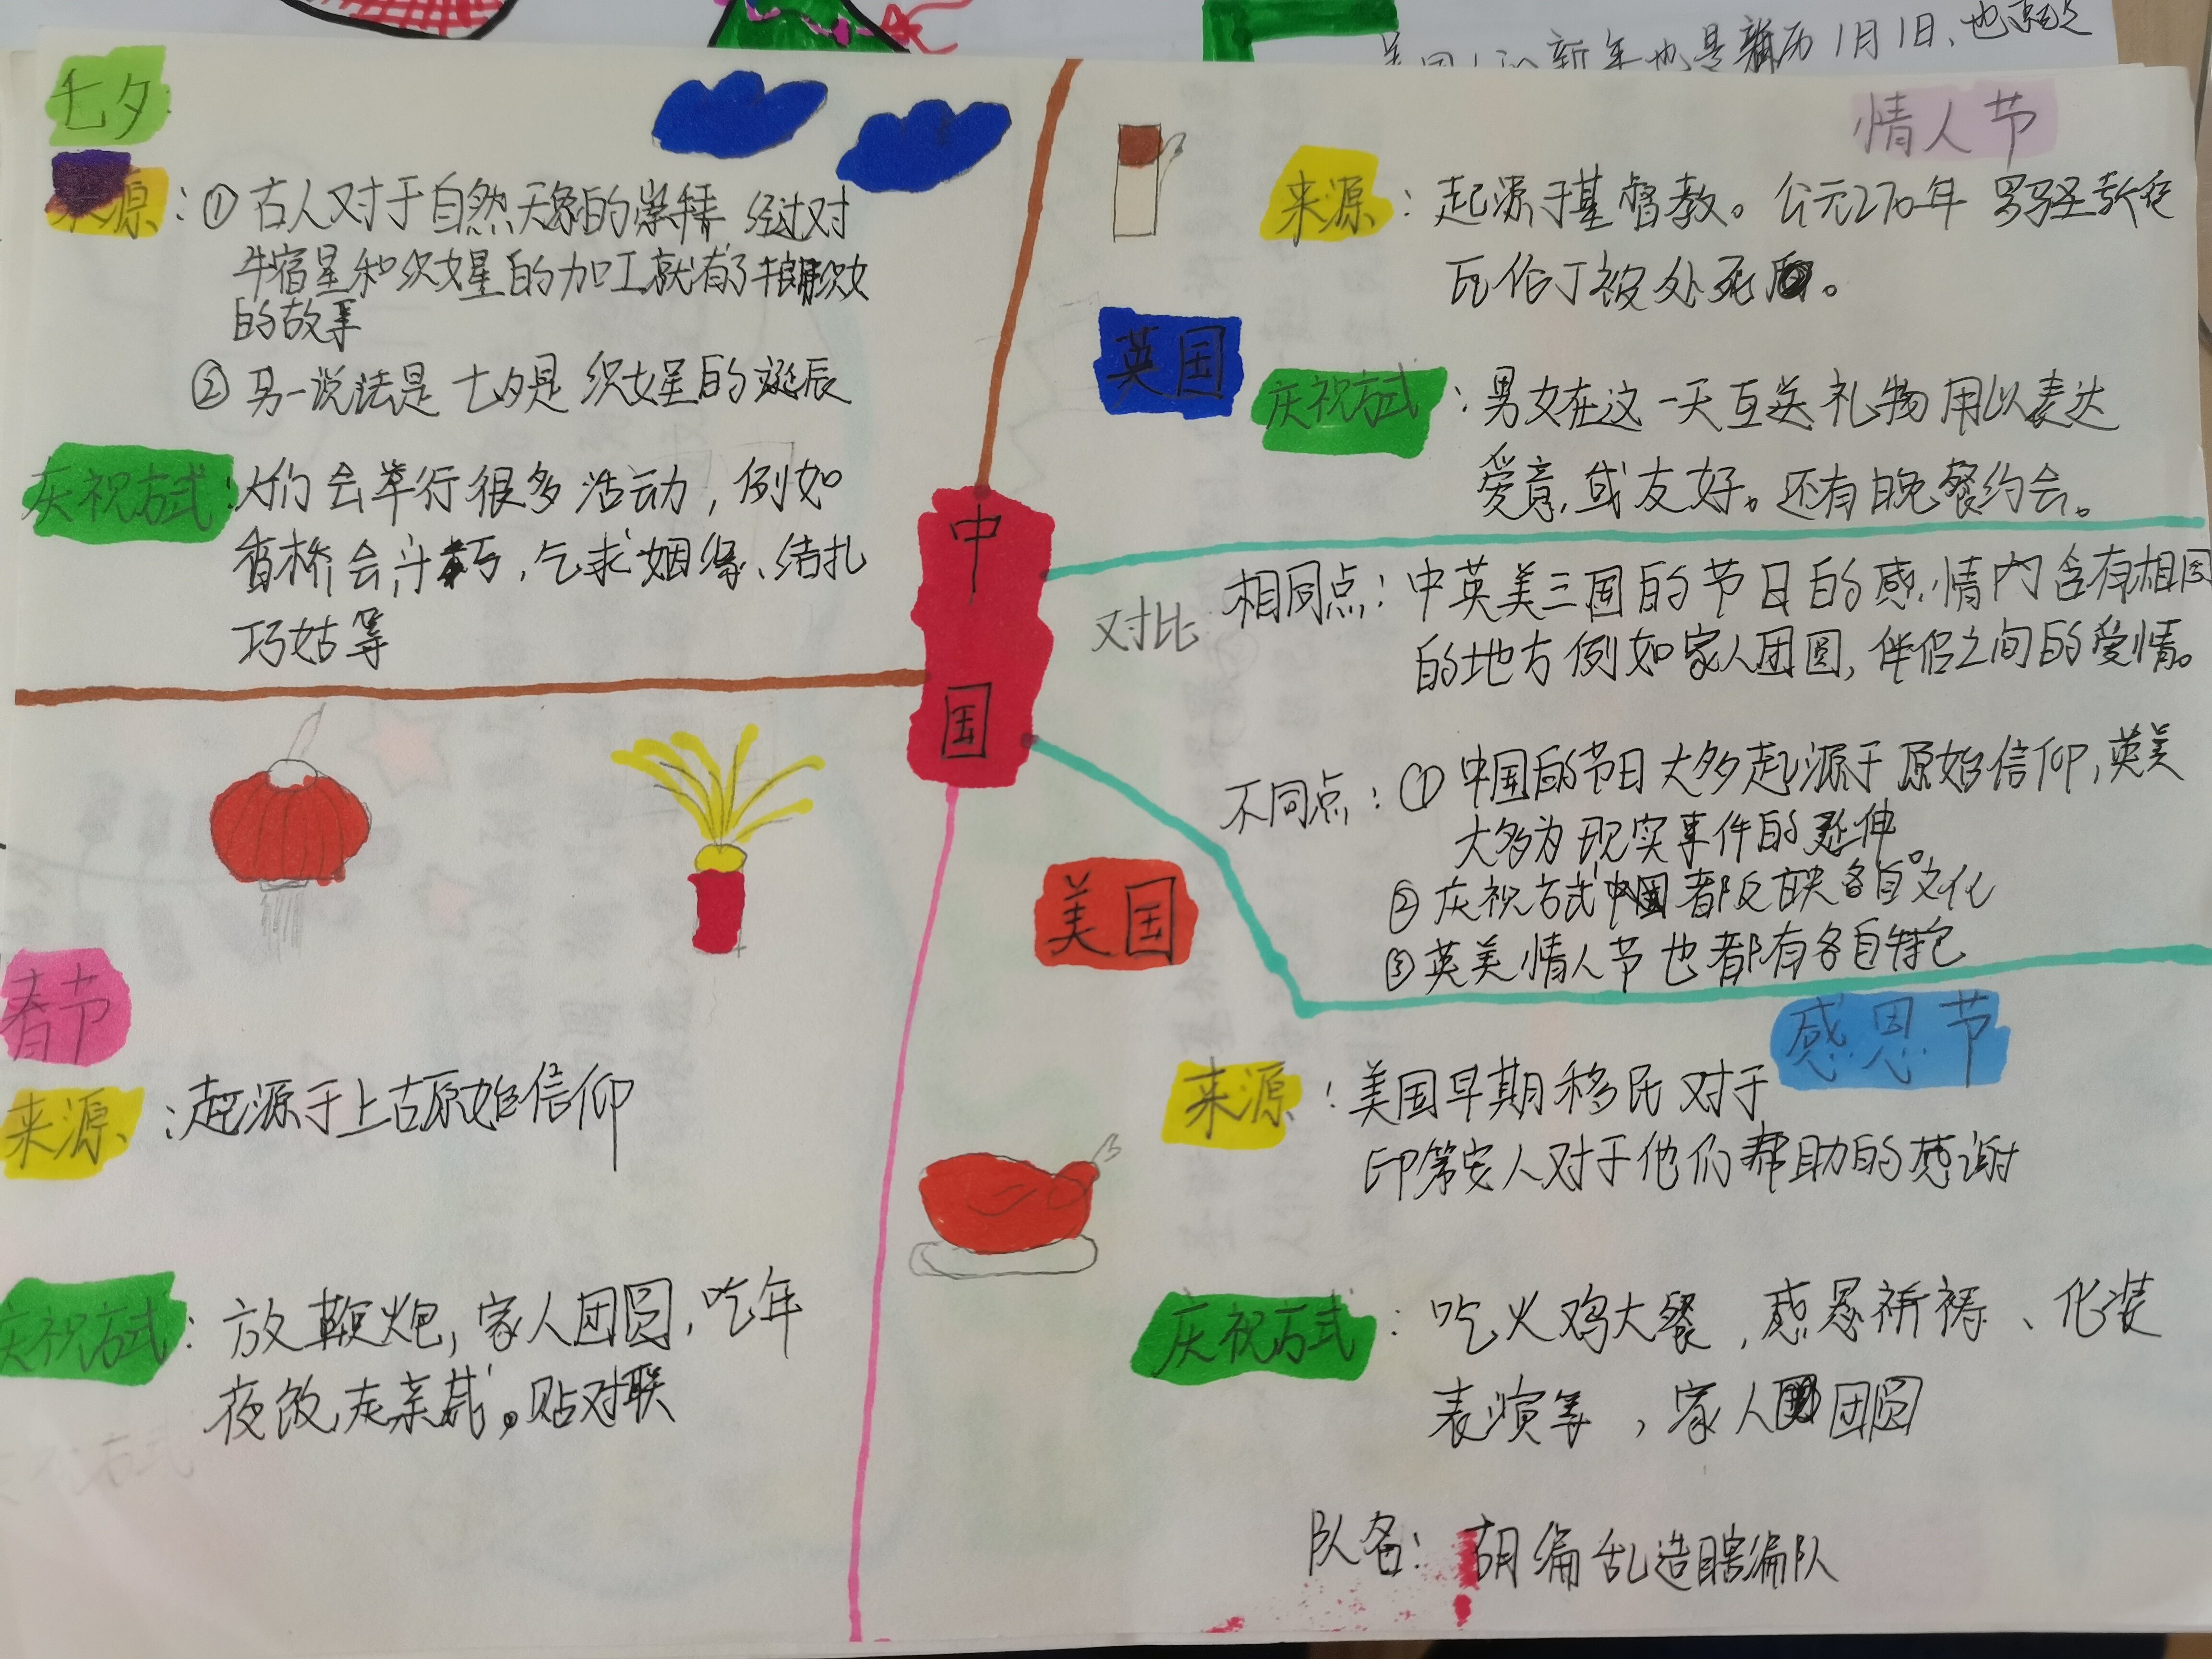 七夕
来源：①古人对于自然天象的崇精 经过对
牛宿星和织女星的加工就有了牛郎织女
的故事
②另一说法是 七夕是 织女星的诞辰
庆祝方式：人们会举行很多活动，例如
香桥会斗巧，乞求姻缘、结扎
巧姑等
中国
春节
来源：起源于上古原始信仰
庆祝方式：放鞭炮，家人团圆，吃年
夜饭，走亲戚。贴对联
美国人的新年也是 历1月1日、也
情人节
来源：起源于基督教。公元270年 罗圣教徒
瓦伦丁被处死。
英国
庆祝方式：男女在这一天互送礼物用以表达
爱意，或友好。还有晚餐约会。
对比
相同点：中英美三国的节日的感情内含有相同
的地方例如家人团圆，伴侣之间的爱情。
不同点：①中国的节日大多起源于原始信仰，英美
大多为现实事件的延伸。
②庆祝方式中国都反映各自文化
③英美情人节也都有各自特色
美国
感恩节
来源：美国早期移民对于
印第安人对于他们帮助的感谢
庆祝方式：吃火鸡大餐，感恩祈祷、化装
表演等，家人团圆
队名：胡编乱造瞎编队